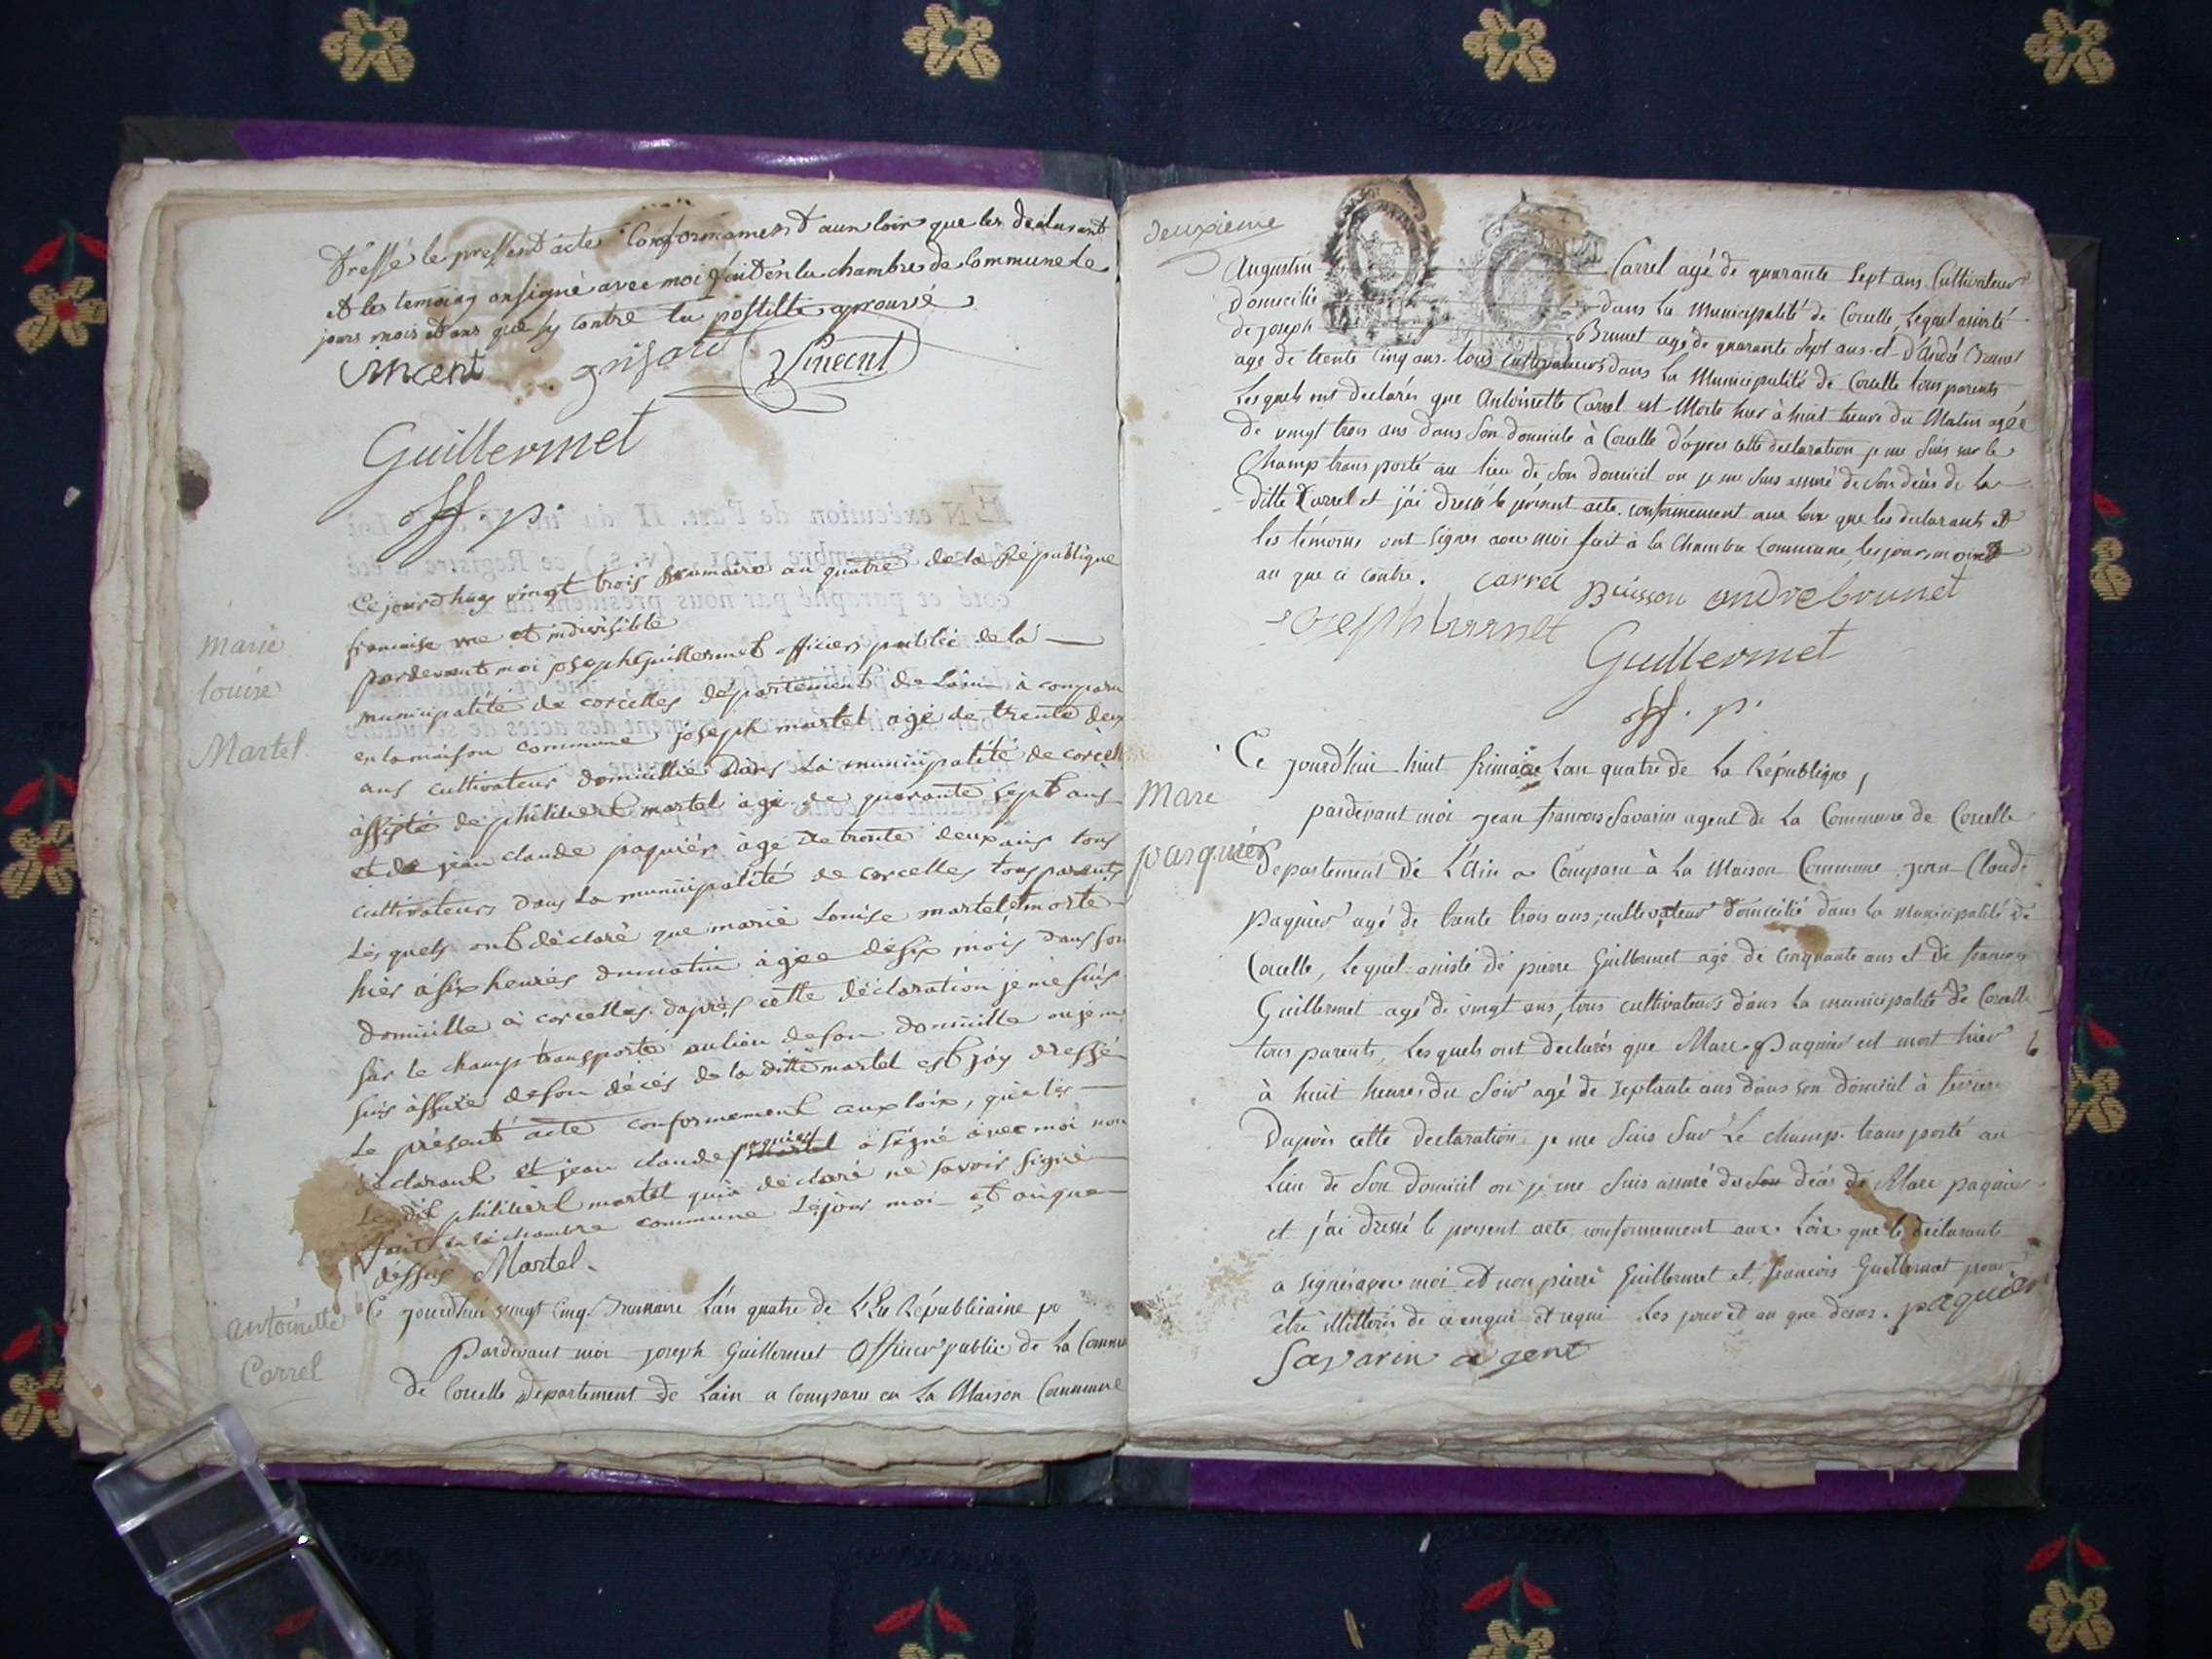 Dressé le pressent acte Conformament aux loix que les declarant
et les temoing onsigné avec moi fait en la chambre de Commune le
jours mois et ans que sy contre la postille aprouvé
Vincent grisard Vincent
Guillermet
off. p.
Ce jourdhuy vingt trois brumaire an quatre de la République
francaise une et indivisible
pardevant moi joseph Guillermet officier public de la
municipalité de corcelles département de Lain à comparu
en la maison commune joseph martel agé de trente deux
ans cultivateur domicillié Dans La municipalité de corcelle
assisté de philibert martel agé de quarante sept ans
et de jean claude paquier âgé de trente deux ans tous
cultivateurs dans La municipalité de corcelles tous parents
Lesquels ont déclaré que marie Louise martel et morte
hier à six heures du matin agée de six mois dans son
domicille à corcelles d'après cette déclaration je me suis
sur le champ transporté au lieu de son domicille ou je me
suis assuré de son décès de la ditte martel est j'ay dressé
Le présent acte conformement aux loix, que les
déclarant et jean claude paquier martel a signé avec moi non
Le dit philibert martel qui a déclaré ne savoir signé
fait en la chambre commune Lejour moi et an que
dessus Martel.
marie
louise
Martel.
Ce jourdhui vingt Cinq. Brumaire L'an quatre de L'Ere Républicaine po
Pardevant moi joseph Guillermet Officier public de La Commune
de Corcelle Departement de Lain a Comparu en La Maison Commune
Antoinette
Carrel
deuxieme
Augustin Carrel agé de quarante Sept ans Cultivateur
Domicilié dans La Municipalité de Corcelle, Lequel assisté
de joseph Brunet agé de quarante Sept ans et d'André Brunet
age de trente Cinq ans. tous cultivateurs dans La Municipalité de Corcelle tous parents
Lesquels ont declarés que Antoinette Carrel est Morte hier à huit heure du Matin agée
de vingt trois ans dans Son domicile à Corcelle d'après cette declaration je me suis sur le
Champ transporté au lieu de Son domicil ou je me suis assuré de Son décès de La
ditte Carrel et j'ai dressé le présent acte conformement aux Loix que les declarants et
les témoins ont signés avec moi fait à la Chambre Commune, les jour, mois et
an que ci contre. Carrel Buisson andre brunet
Joseph brunet
Guillermet
off. p.
Ce jourd'hui huit frimaire Lan quatre de La République,
pardevant moi Jean francois Savarin agent de La Commune de Corcelle
Departement de L'Ain a Comparu à La Maison Commune Jean Claude
Paquier agé de trante trois ans, cultivateur domicilié dans la Municipalité de
Corcelle, Lequel assisté de pierre Guillermet agé de Cinquante ans et de francois
Guillermet agé de vingt ans, tous cultivateurs dans La municipalité de Corcelle
tous parents, Lesquels ont declarés que Marc Paquier est mort hier
à huit heures du Soir agé de septante ans dans son domicil à
Dapres cette declaration je me suis Sur Le champ transporté au
Lieu de Son domicil ou je me suis assuré de Son décès de Marc paquier
et j'ai dressé le present acte conformement aux Loix que le déclarant
a signé avec moi et non pierre Guillermet et francois Guillermet pour
être illitterés de ce enquis et requi Les jour et an que dessus. paquier
Savarin agent
Marc
pasquier